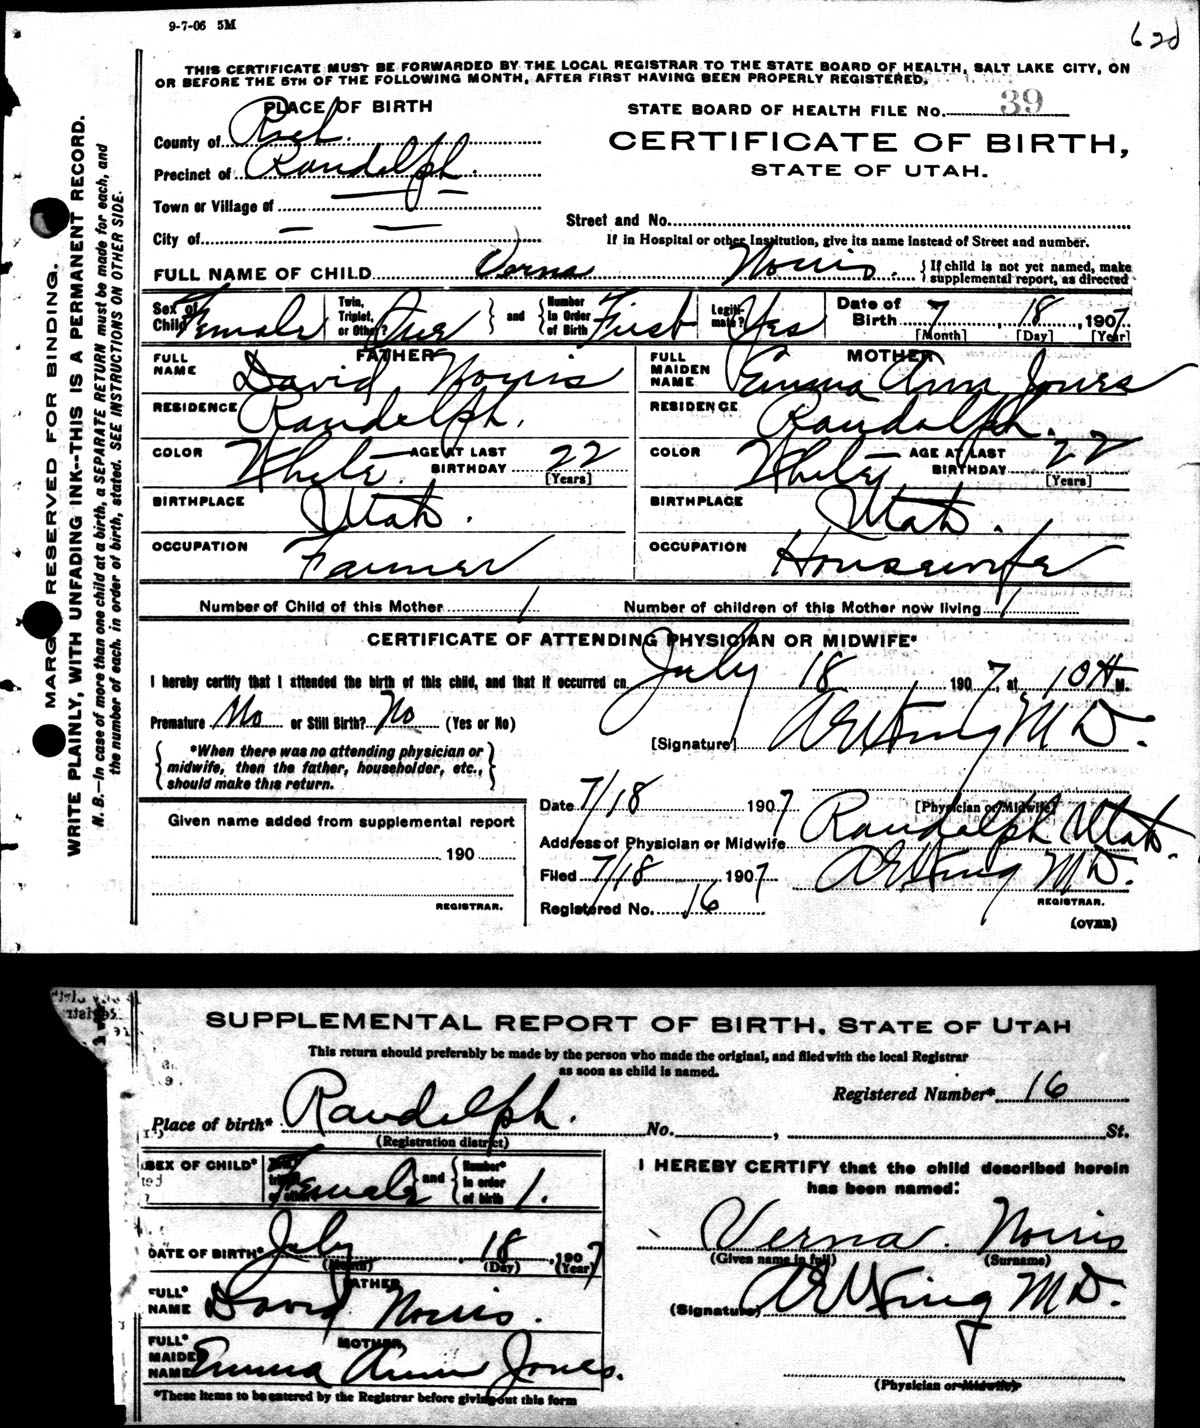 9-7-06 5M
620
THIS CERTIFICATE MUST BE FORWARDED BY THE LOCAL REGISTRAR TO THE STATE BOARD OF HEALTH, SALT LAKE CITY, ON
OR BEFORE THE 5TH OF THE FOLLOWING MONTH, AFTER FIRST HAVING BEEN PROPERLY REGISTERED.
PLACE OF BIRTH
STATE BOARD OF HEALTH FILE No. 39
County of Rich.
CERTIFICATE OF BIRTH,
Precinct of Randolph.
STATE OF UTAH.
Town or Village of
Street and No.
City of
If in Hospital or other Institution, give its name instead of Street and number.
FULL NAME OF CHILD Verna Norris. { If child is not yet named, make supplemental report, as directed
Sex of Child Female Twin, Triplet, or Other? One } and { Number in Order of Birth First Legitimate? Yes Date of Birth 7 18, 1907.
[Month] [Day] [Year]
FATHER MOTHER
FULL NAME David Norris FULL MAIDEN NAME Emma Ann Jones
RESIDENCE Randolph. RESIDENCE Randolph.
COLOR White. AGE AT LAST BIRTHDAY 22 [Years] COLOR White AGE AT LAST BIRTHDAY 22 [Years]
BIRTHPLACE Utah. BIRTHPLACE Utah.
OCCUPATION Farmer OCCUPATION Housewife
Number of Child of this Mother 1 Number of children of this Mother now living 1
CERTIFICATE OF ATTENDING PHYSICIAN OR MIDWIFE*
I hereby certify that I attended the birth of this child, and that it occurred on July 18 1907, at 10 M.
Premature No or Still Birth? No (Yes or No)
[Signature] M D.
{ *When there was no attending physician or midwife, then the father, householder, etc., should make this return. }
[Physician or Midwife]
Date 7/18 1907
Given name added from supplemental report
Address of Physician or Midwife Randolph Utah.
190
Filed 7/18 1907 M D.
REGISTRAR.
REGISTRAR.
Registered No. 16
(OVER)
MARGIN RESERVED FOR BINDING.
WRITE PLAINLY, WITH UNFADING INK--THIS IS A PERMANENT RECORD.
N. B.—In case of more than one child at a birth, a SEPARATE RETURN must be made for each, and
the number of each, in order of birth, stated. SEE INSTRUCTIONS ON OTHER SIDE.
SUPPLEMENTAL REPORT OF BIRTH, STATE OF UTAH
This return should preferably be made by the person who made the original, and filed with the local Registrar
as soon as child is named.
Registered Number* 16
Place of birth* Randolph. No. , St.
(Registration district)
SEX OF CHILD* Female and { Number* in order of birth 1.
I HEREBY CERTIFY that the child described herein
has been named:
DATE OF BIRTH* July 18, 1907
(Month) (Day) (Year)
Verna. Norris
(Given name in full) (Surname)
FATHER
FULL* NAME David Norris.
(Signature) M D.
MOTHER
FULL* MAIDEN NAME Emma Ann Jones.
(Physician or Midwife)
*These items to be entered by the Registrar before giving out this form